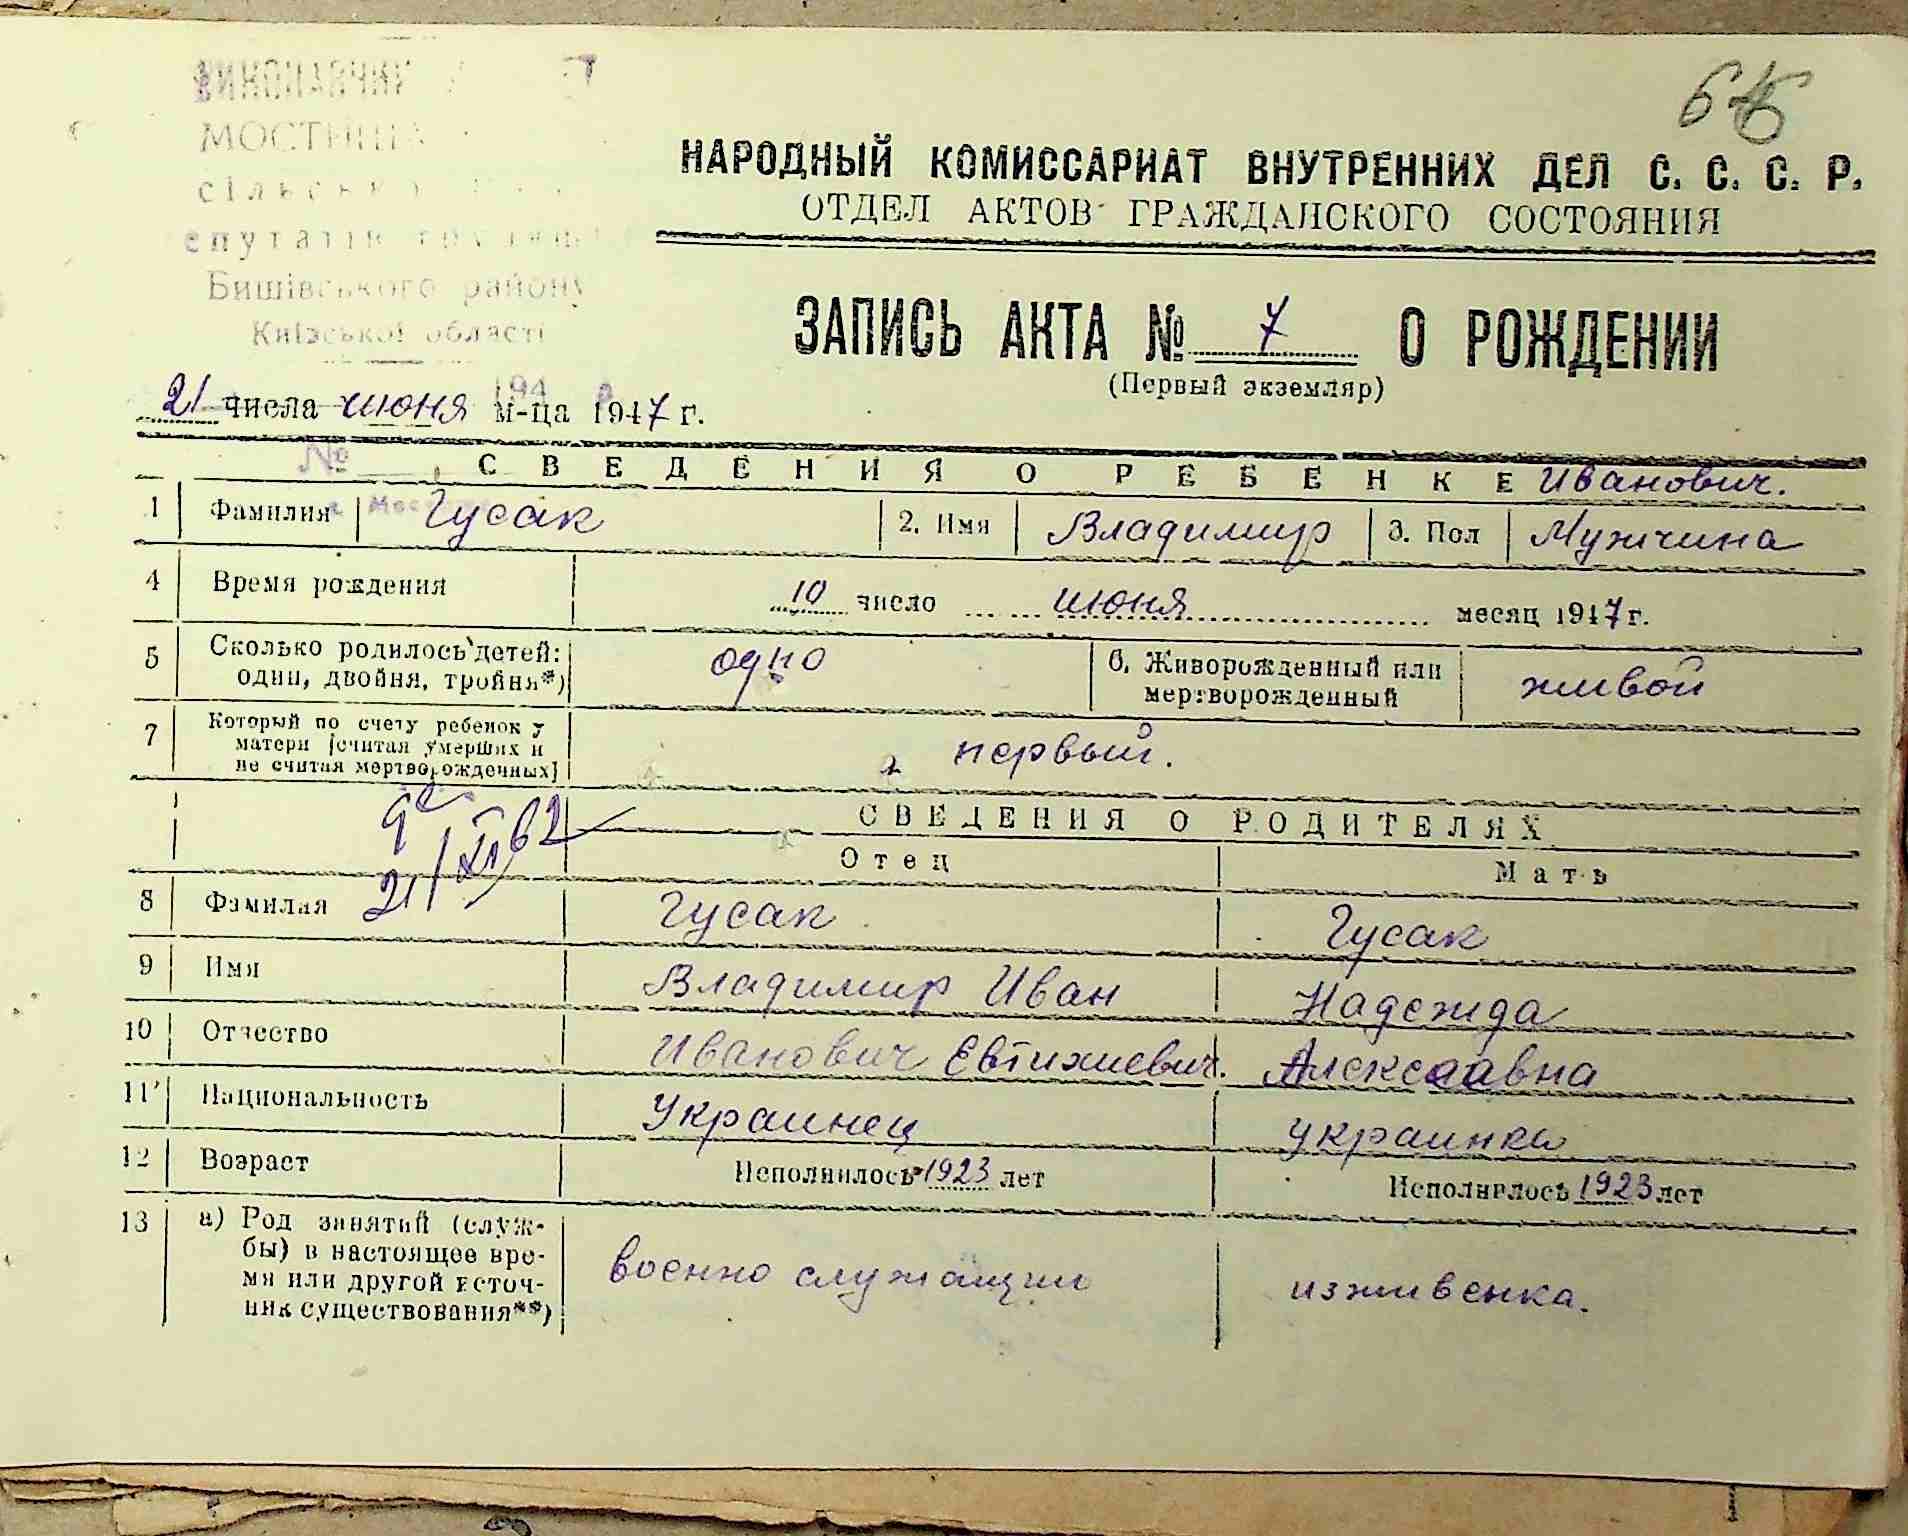 ВИКОНАВЧИЙ
МОСТИЩА
сільсько
епутатів трудящ
Бишівського району
Київської області
194 р
№
66
НАРОДНЫЙ КОМИССАРИАТ ВНУТРЕННИХ ДЕЛ С. С. С. Р.
ОТДЕЛ АКТОВ ГРАЖДАНСКОГО СОСТОЯНИЯ
ЗАПИСЬ АКТА № 7 О РОЖДЕНИИ
(Первый экземляр)
21 числа июня м-ца 1947 г.
СВЕДЕНИЯ О РЕБЕНКЕ Иванович.
1 Фамилия Гусак 2. Имя Владимир 3. Пол Мужчина
4 Время рождения 10 число июня месяц 1947 г.
5 Сколько родилось детей: одни, двойня, тройня*) одно 6. Живорожденный или мертворожденный живой
7 Который по счету ребенок у матери [считая умерших и не считая мертворожденных] первый.
21/XI 62
СВЕДЕНИЯ О РОДИТЕЛЯХ
Отец Мать
8 Фамилия Гусак Гусак
9 Имя Владимир Иван Надежда
10 Отчество Иванович Евтихиевич. Алексеавна
11 Национальность Украинец украинка
12 Возраст Исполнилось 1923 лет Исполнилось 1923 лет
13 а) Род занятий (службы) в настоящее время или другой источник существования**) военно служащии изживенка.